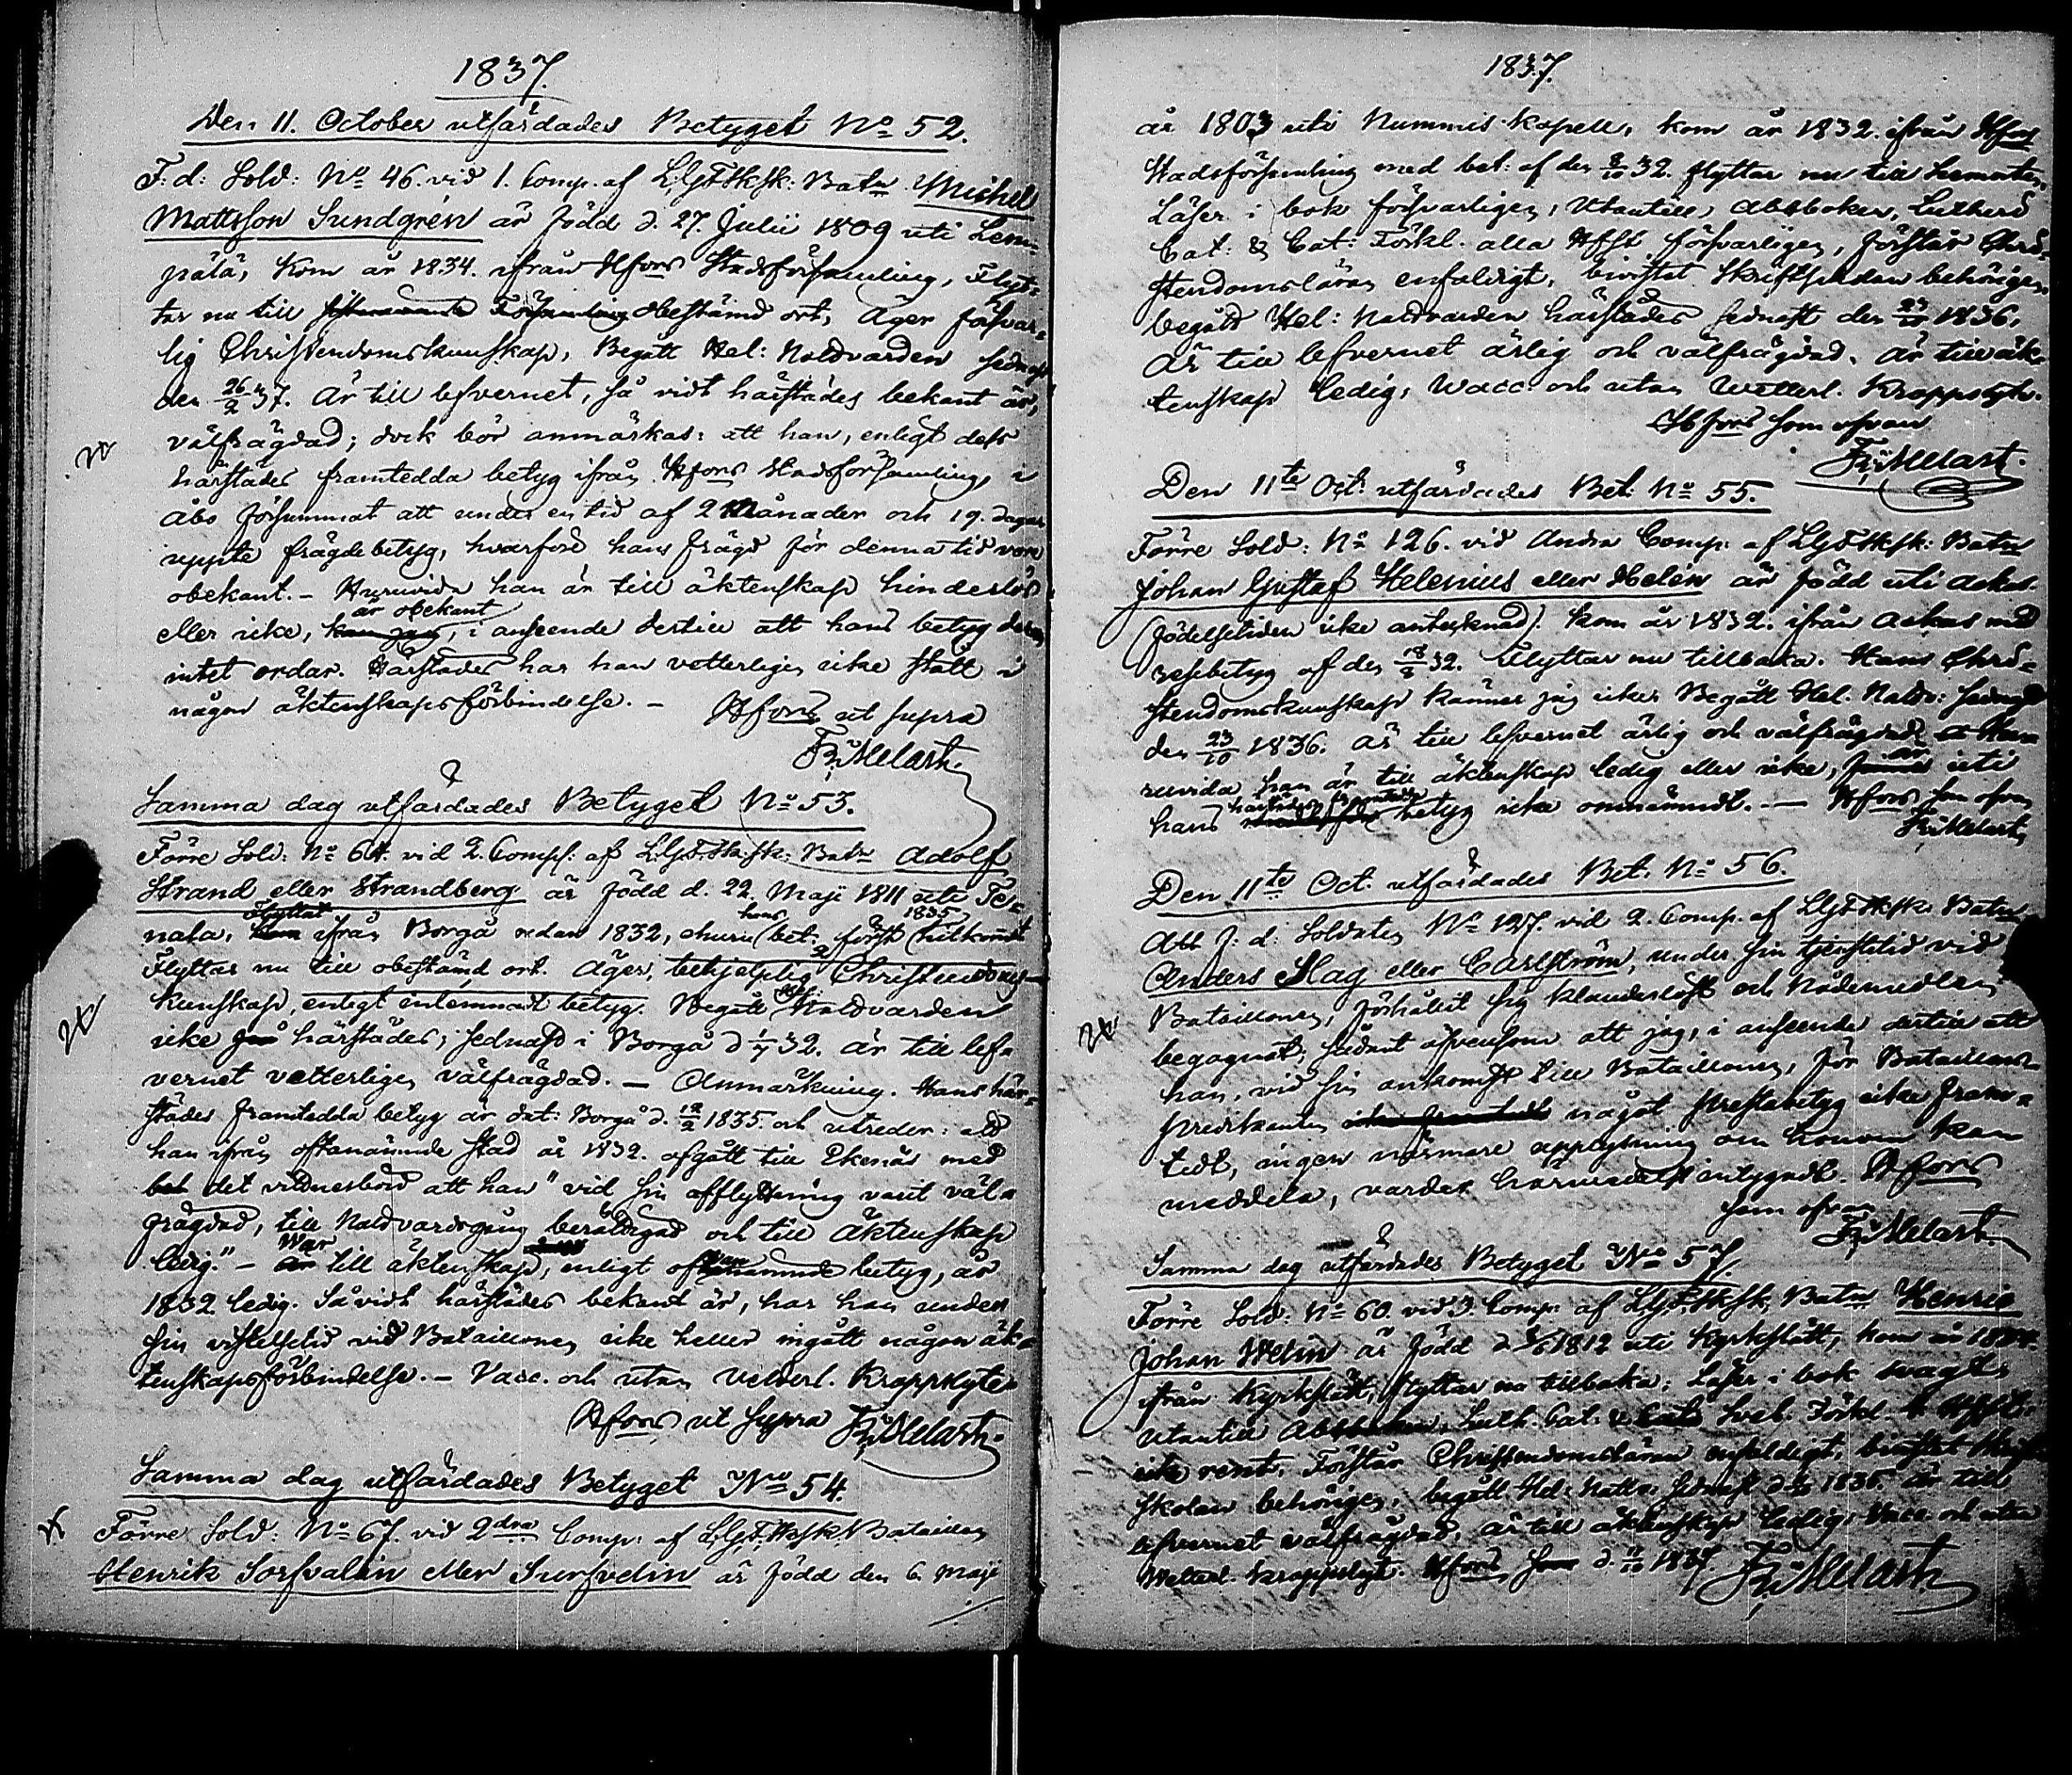 1837.
Den 11. October utfärdades Betyget No 52.
F. d: Sold: No 46. vid 1. Comp. af L.G.F.Sksk: Batn Michel
Mattsson Sundgrén är född d. 27. Julii 1809 uti Lem-
pälä, kom år 1834. ifrån Hfors Stadsförsamling, Flyt-
tar nu till Församling obestämd ort, Äger försvar-
lig Christendomskunskap, Begått Hel: Nattvarden sednast
den 26/2 37. Är till lefvernet, så vidt härstädes bekant är,
välfrägdad; dock bör anmärkas: att han, enligt dess
härstädes framtedda betyg ifrån Hfors Stadsförsamling, i
Åbo försummat att under en tid af 2 Månader och 19. dagar
uppte frägdebetyg, hvarföre hans frägd för denna tid vore
obekant. - Huruvida han är till äktenskap hinderslös
är obekant
eller icke, kan jag, i anseende dertill att hans betyg derom
intet ordar. Härstädes har han vetterligen icke stått i
någon äktenskapsförbindelse. -
Hfors ut supra
Fr: Melart.
Samma dag utfärdades Betyget No 53.
Förre Sold: No 64. vid 2. Comp: af L.G.F.Sk.sk: Batn Adolf
Strand eller Strandberg är född d. 22. Maji 1811 uti Te-
Flyttat hans 1835
nala, kom ifrån Borgå redan 1832, churu bet. först tillkommit
Flyttar nu till obestämd ort. Äger, behjelplig Christendoms-
Hel:
kunskap, enligt inlemnadt betyg. Begått Nattvarden
icke härstädes; sednast i Borgå d 1/7 32. är till lef-
vernet vetterligen välfrägdad. - Anmärkning. Hans här-
städes framtedda betyg är dat: Borgå d. 12/2 1835. och utreder: att
han ifrån oftanämnde stad år 1832. afgått till Ekenäs med
bet det vittnesbörd att han "vid sin afflyttning varit väl-
frägdad, till Nattvardsgång berättigad och till äktenskap
War
ledig." - är till äktenskap, enligt oftanämnde betyg, år
1832 ledig. Så vidt härstädes bekant är, har han under
sin vistelsetid vid Bataillonen icke heller ingått någon äk-
tenskapsförbindelse. - Vacc. och utan vetterl. Kroppslyte.
Hfors ut supra Fr: Melart.
Samma dag utfärdades Betyget No 54.
Förre Sold: No 67. vid 2dra Comp: af L.G.F.Sksk. Bataillon
Henrik Sorfvalin eller Surfvelin är född den 6. Maji
1837.
år 1803 uti Nummis kapell, kom år 1832. ifrån Hfors
Stadsförsamling med bet: af den 8/10 32. flyttar nu till
Läser i bok försvarligen, Utantill, Abcboken, Lutheri
Cat: & Cat: Förkl. alla försvarligen, förstår Chri-
stendomsläran enfaldigt, bivistat Skriftskolan behörigen,
begått Hel: Nattvarden härstädes sednast den 23/10 1836,
Är till lefvernet ärlig och välfrägdad. Är till äk-
tenskap ledig, Wacc. och utan Wetterl. Kroppslyte.
Hfors som ofvan
Fr: Melart.
Den 11te Oct: utfärdades Bet. No 55.
Förre Sold: No 126. vid Andra Comp: af L.G.F.Sksk: Batn
Johan Gustaf Helenius eller Helén är född uti Askas
(födelsetiden icke antecknad). kom år 1832. ifrån Askas med
betyg af den 18/8 32. Flyttar nu tillbaka. Hans Chri-
stendomskunskap känner jag icke. Begått Hel. Nattv: sednast
den 23/10 1836. är till lefvernet ärlig och välfrägdad. Hu-
ruvida han är till äktenskap ledig eller icke, är uti
härstädes framtedda
hans betyg icke omnämndt. - Hfors som ofvan
Fr: Melart.
Den 11te Oct. utfärdades Bet. No 56.
Att f: d: Soldaten No 127. vid 2. Comp. af L.G.F.Sksk: Batn
Anders Slag eller Carlström, under sin tjenstetid vid
Bataillonen, förhållit sig klanderslöst och Nådemedlen
begagnat; sådant äfvensom att jag, i anseende dertill att
han, vid sin ankomst till Bataillonen, för Bataillons
Predikanten icke framtedt något prestabetyg icke fram-
tedt, ingen närmare upplysning om honom kan
meddela, varder härmedelst intygadt. Hfors
som ofvan
Fr: Melart.
Samma dag utfärdades Betyget No 57.
Förre Sold: No 60. vid 3. Comp: af L.G.F.Sksk. Batn Henric
Johan Welin är född 1812 uti Kyrkslätt, kom år 1834.
ifrån Kyrkslätt, flyttar nu tillbaka. Läser i bok svagt.
utantill Abcboken, Luth. Cat: Sveb. Förkl.
icke rent. Förstår Christendomsläran enfaldigt, bivistat Skrift
skolan behörigen, begått Hel: Nattv. sednast 1835. är till
lefvernet välfrägdad, är till äktenskap ledig. Vacc. och utan
Wetterl. kroppslyte. Hfors d. 11/10 1837. Fr: Melart